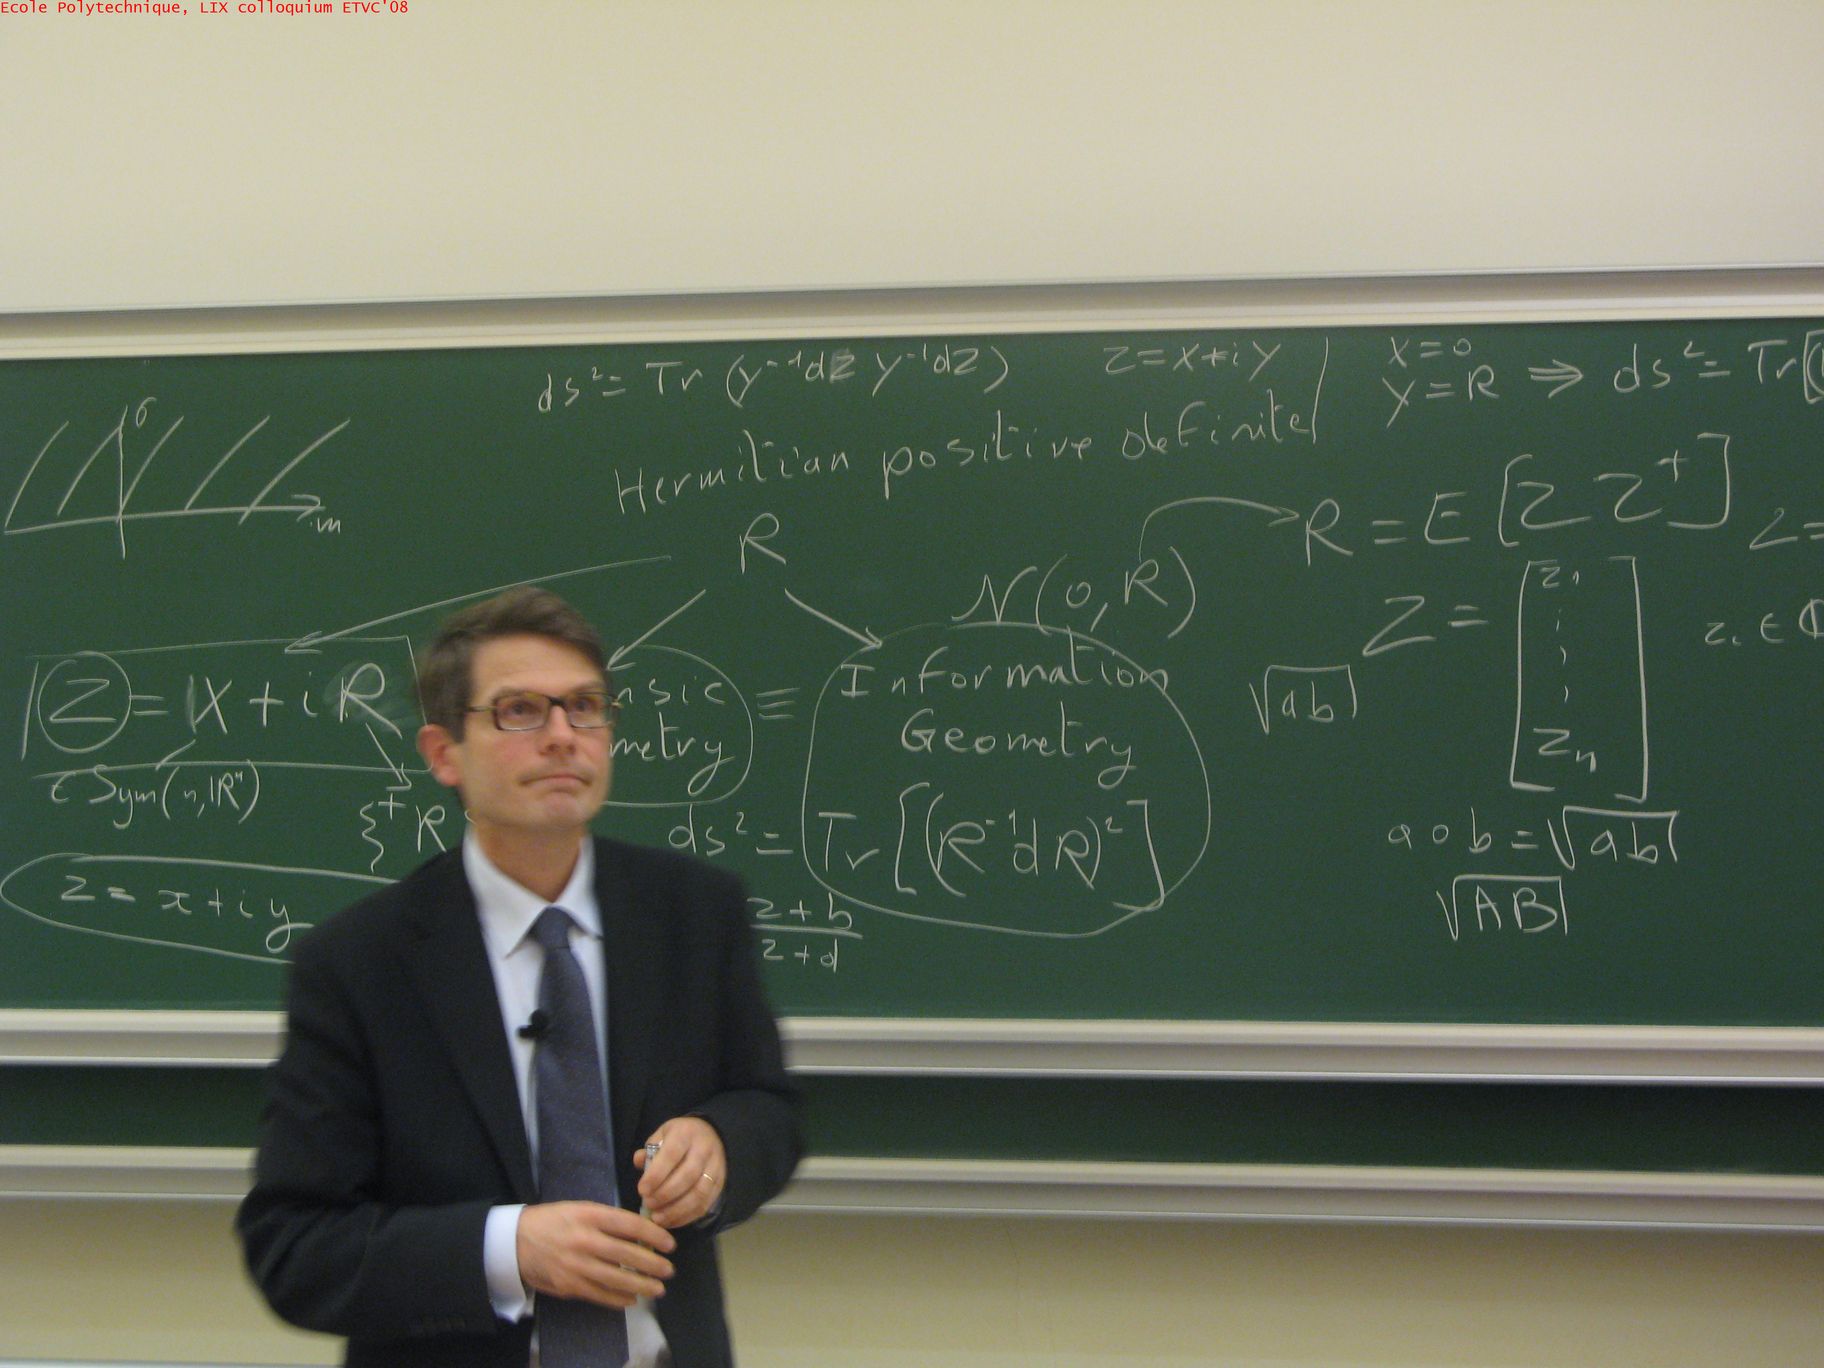 Ecole Polytechnique, LIX colloquium ETVC'08
ds² = Tr (Y⁻¹dZ Y⁻¹dZ)
Z = X + iY
X = 0
Y = R ⇒ ds² = Tr[(
σ
m
Hermitian positive definite
R
N(0, R)
R = E [Z Z⁺]
Z =
Z = [z₁ ⋮ zₙ]
zᵢ ∈ ℂ
Z = X + i R
∈ Sym(n, ℝⁿ)
{⁺ R
nsic
metry
≡
Information
Geometry
ds² = Tr[(R⁻¹dR)²]
z = x + iy
z + b
z + d
√ab
a o b = √ab
√AB